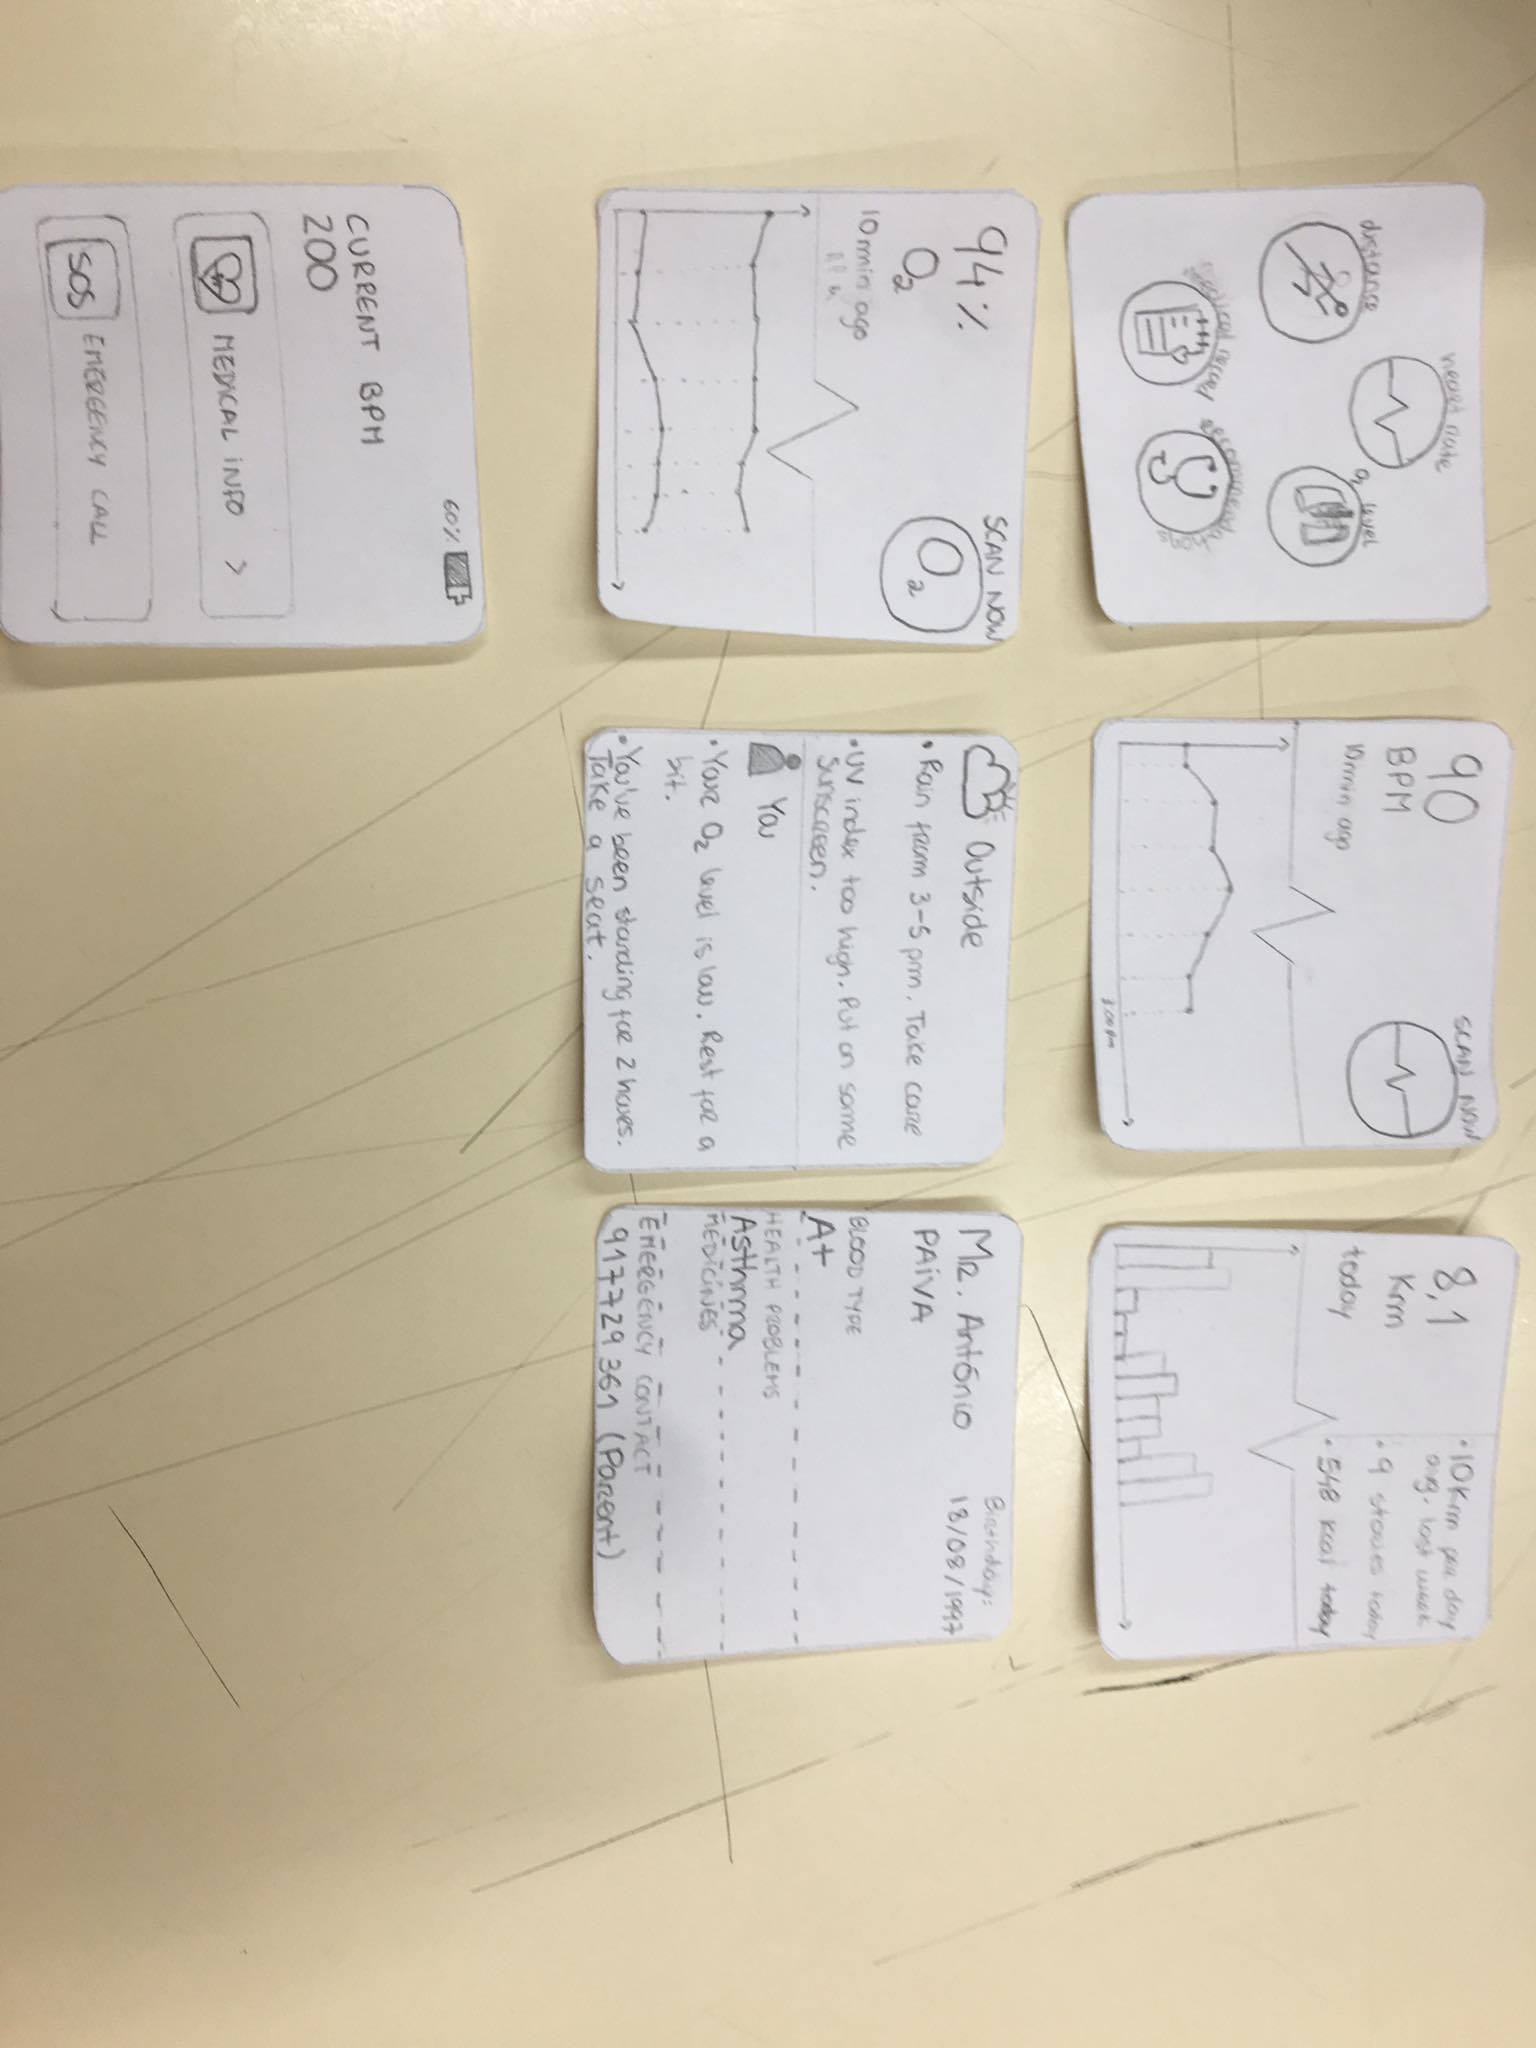 heart rate
distance
O2 level
medical record
recommendations
90
BPM
10 min ago
SCAN NOW
3:00 pm
8,1
Km
today
• 10 Km per day
avg. last week
• 9 stories today
• 548 Kcal today
94%
O2
10 min ago
SCAN NOW
O2
Outside
• Rain from 3-5 pm. Take care
• UV index too high. Put on some
sunscreen.
You
• Your O2 level is low. Rest for a
bit.
• You've been standing for 2 hours.
Take a seat.
Mr. António
PAIVA
Birthday:
18/08/1997
BLOOD TYPE
A+
HEALTH PROBLEMS
Asthma
MEDICINES
EMERGENCY CONTACT
917729361 (Parent)
60%
CURRENT BPM
200
MEDICAL INFO >
SOS EMERGENCY CALL